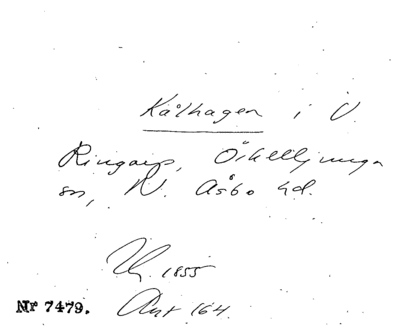 Kålhagen i V.
Ringarp, Örkelljunga
sn, N. Åsbo hd.
1855
Nr 7479. Ant 164.